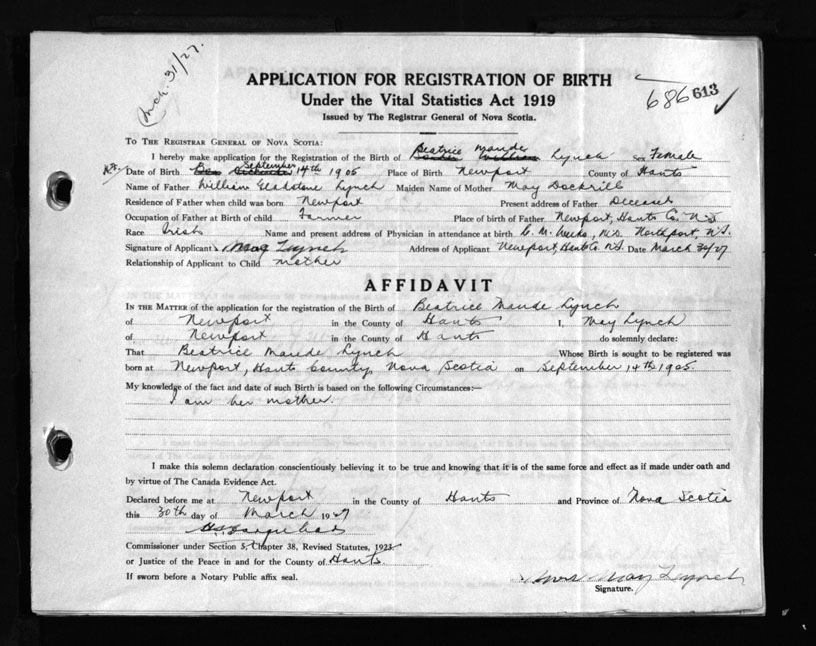 Mch. 31/27.
APPLICATION FOR REGISTRATION OF BIRTH
Under the Vital Statistics Act 1919
Issued by The Registrar General of Nova Scotia.
686 613
TO THE REGISTRAR GENERAL OF NOVA SCOTIA:
Beatrice Maude
I hereby make application for the Registration of the Birth of William Lynch Sex Female
September
Date of Birth 14th 1905 Place of Birth Newport County of Hants
Name of Father William Gladstone Lynch Maiden Name of Mother May Dockrill
Residence of Father when child was born Newport Present address of Father Deceased
Occupation of Father at Birth of child Farmer Place of birth of Father Newport, Hants Co. N.S
Race Irish Name and present address of Physician in attendance at birth C. M. Weeks, M.D. Newport, N.S.
Signature of Applicant May Lynch Address of Applicant Newport, Hants Co. N.S. Date March 30/27
Relationship of Applicant to Child mother
AFFIDAVIT
IN THE MATTER of the application for the registration of the Birth of Beatrice Maude Lynch
of Newport in the County of Hants I, May Lynch
of Newport in the County of Hants do solemnly declare:
That Beatrice Maude Lynch Whose Birth is sought to be registered was
born at Newport, Hants County, Nova Scotia on September 14th 1905.
My knowledge of the fact and date of such Birth is based on the following Circumstances:—
I am her mother.
I make this solemn declaration conscientiously believing it to be true and knowing that it is of the same force and effect as if made under oath and
by virtue of The Canada Evidence Act.
Declared before me at Newport in the County of Hants and Province of Nova Scotia
this 30th day of March 1927
Commissioner under Section 5, Chapter 38, Revised Statutes, 1923,
or Justice of the Peace in and for the County of Hants.
If sworn before a Notary Public affix seal.
Mrs May Lynch
Signature.